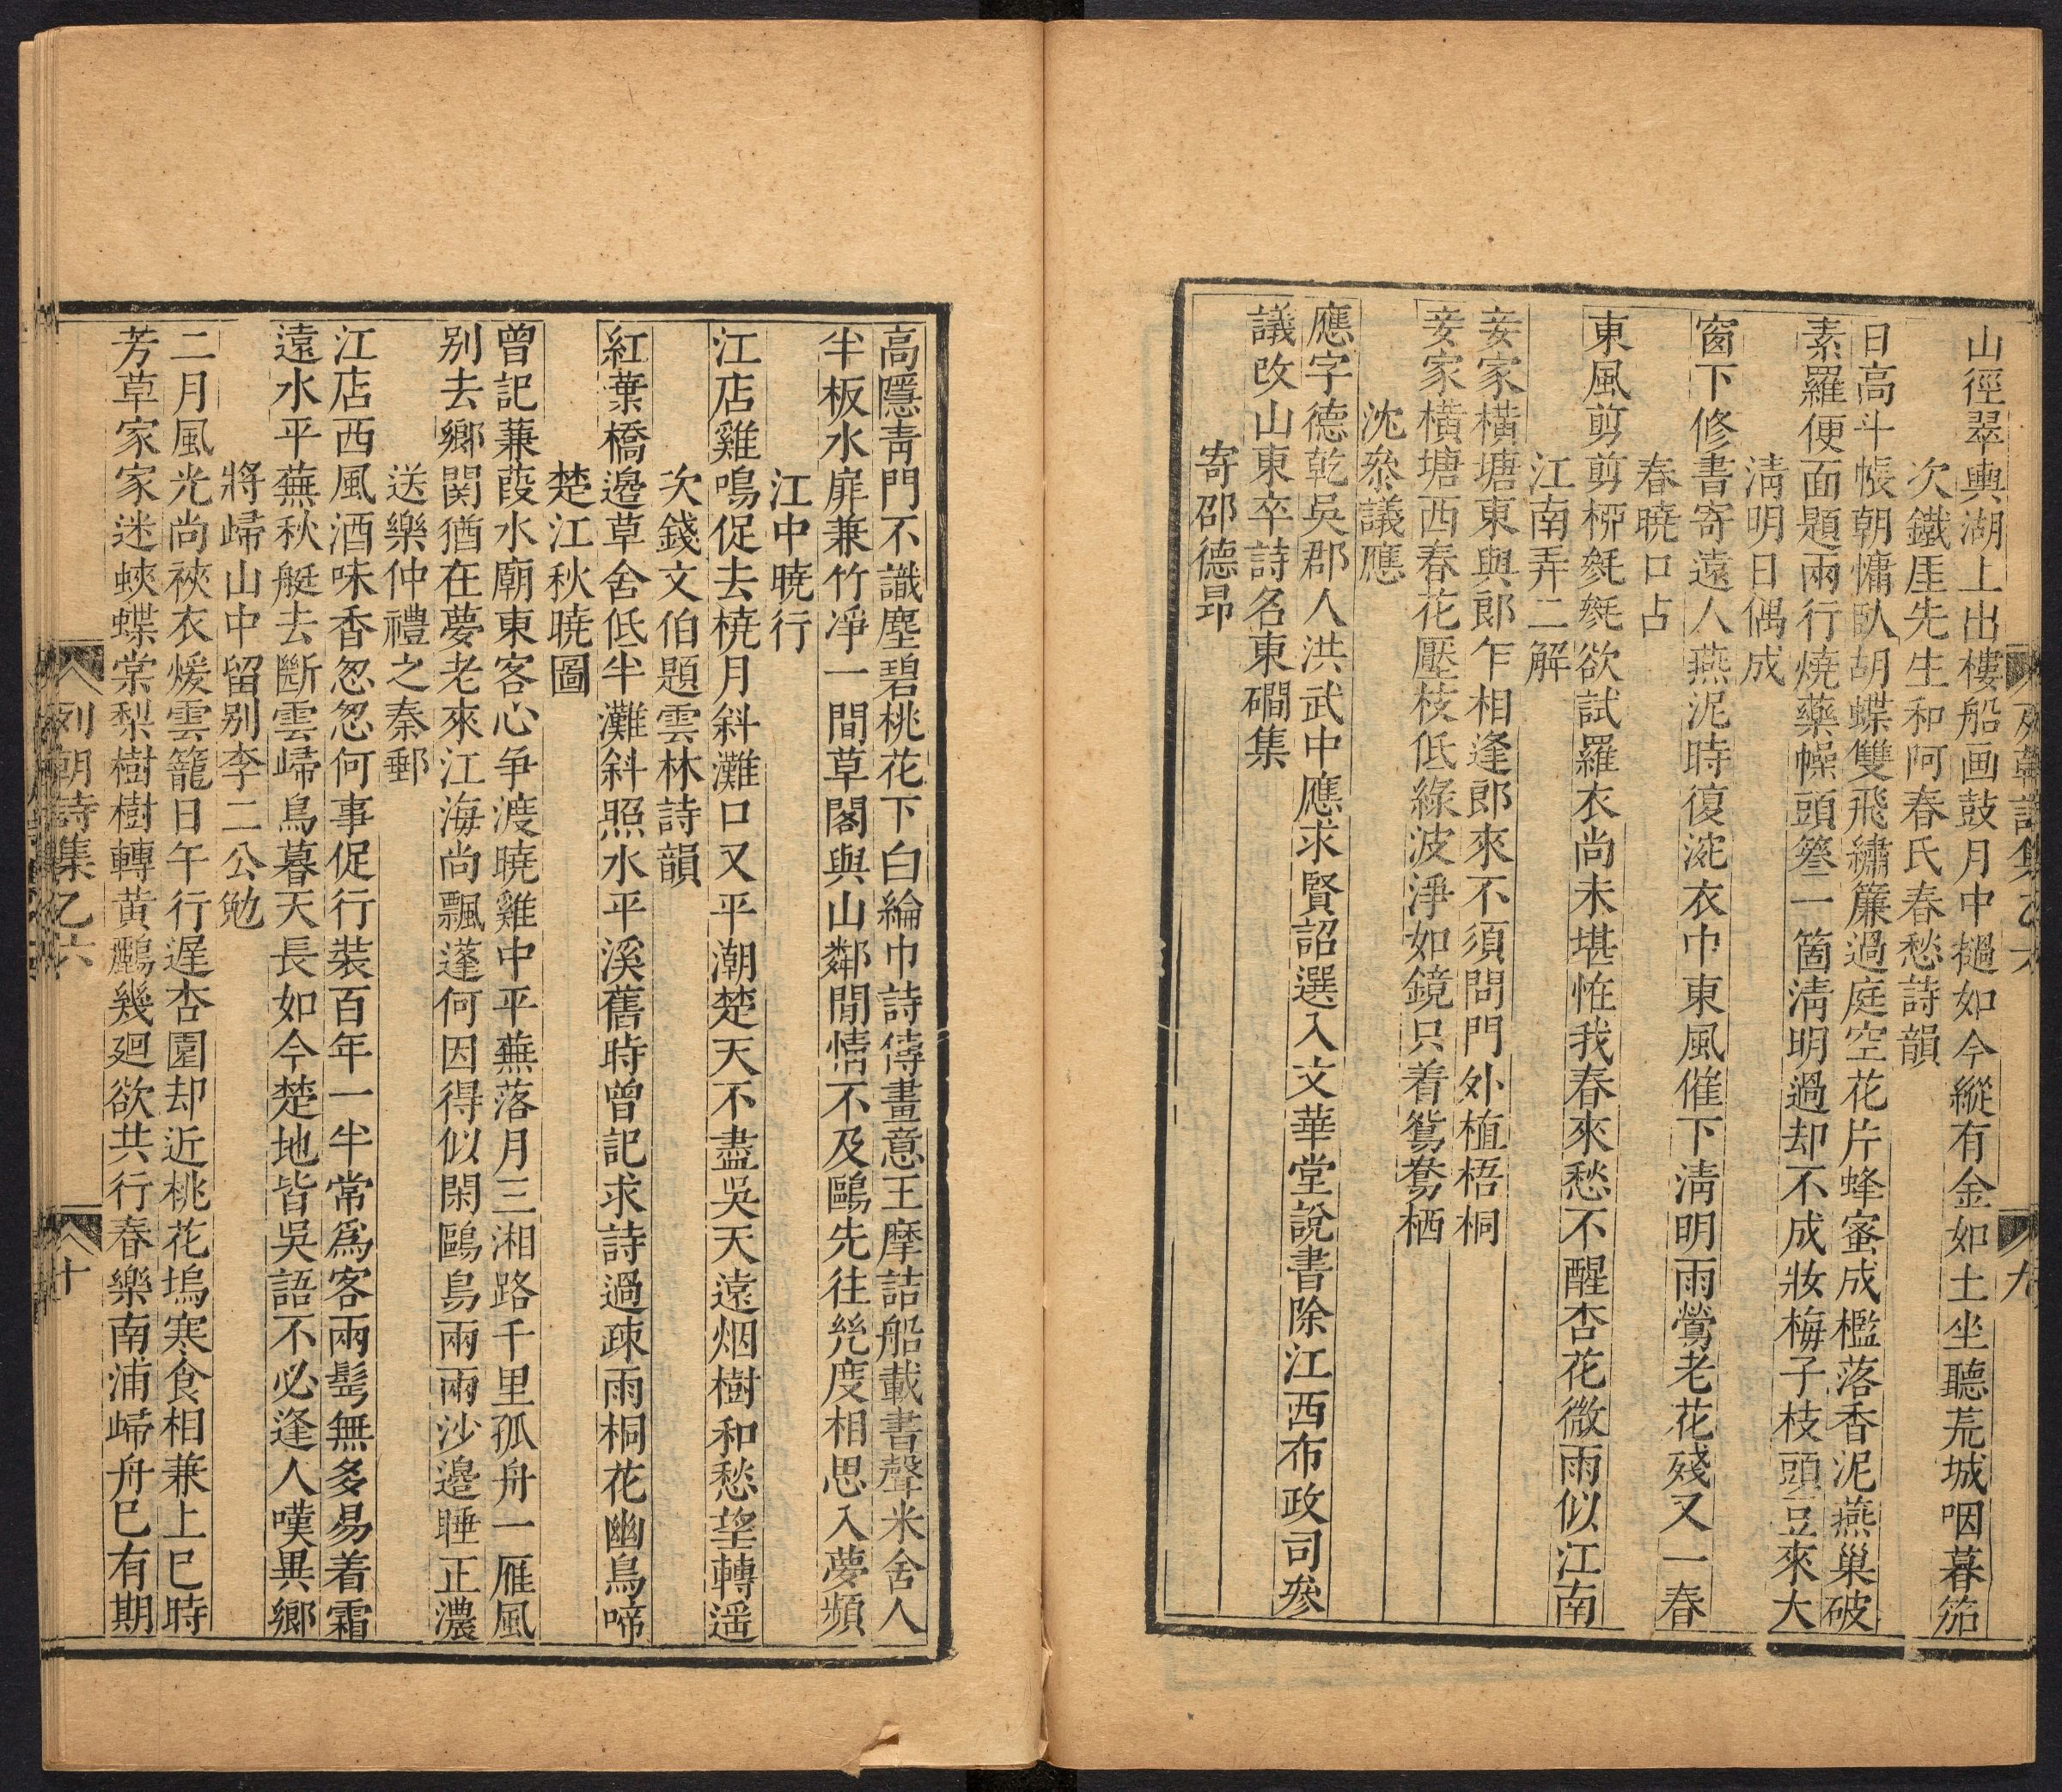 山徑翠輿湖上出樓船画鼓月中撾如今縱有金如土坐聽荒城咽暮笳
次鐵厓先生和阿春氏春愁詩韻
日高斗帳朝慵臥胡蝶雙飛繡簾過庭空花片蜂蜜成檻落香泥燕巢破
素羅便面題兩行燒藥幧頭簪一箇淸明過却不成妝梅子枝頭豆來大
淸明日偶成
窗下修書寄遠人燕泥時復涴衣巾東風催下淸明雨鶯老花殘又一春
春曉口占
東風剪剪栁毿毿欲試羅衣尚未堪恠我春來愁不醒杏花微雨似江南
江南弄二解
妾家橫塘東與郎乍相逢郎來不須問門外植梧桐
妾家橫塘西春花壓枝低綠波淨如鏡只着鴛鴦栖
沈叅議應
應字德乾吳郡人洪武中應求賢詔選入文華堂說書除江西布政司叅
議改山東卒詩名東磵集
寄邵德昻
列朝詩集乙六
九
高隱靑門不識塵碧桃花下白綸巾詩傳畫意王摩詰船載書聲米舍人
半板水扉兼竹凈一間草閣與山鄰閒情不及鷗先往㡬度相思入夢頻
江中曉行
江店雞鳴促去橈月斜灘口又平潮楚天不盡吳天遠烟樹和愁望轉遥
次錢文伯題雲林詩韻
紅葉橋邉草舍低半灘斜照水平溪舊時曾記求詩過疎雨桐花幽鳥啼
楚江秋曉圖
曾記蒹葭水廟東客心争渡曉雞中平蕪落月三湘路千里孤舟一雁風
别去鄉関猶在夢老來江海尚飄蓬何因得似閑鷗鳥兩兩沙邉睡正濃
送樂仲禮之秦郵
江店西風酒味香怱怱何事促行裝百年一半常爲客兩髩無多易着霜
遠水平蕪秋艇去斷雲歸鳥暮天長如今楚地皆吳語不必逢人嘆異鄉
將歸山中留别李二公勉
二月風光尚裌衣煖雲籠日午行遲杏園却近桃花塢寒食相兼上巳時
芳草家家迷蛺蝶棠梨樹樹轉黃鸝幾廻欲共行春樂南浦歸舟巳有期
列朝詩集乙六
十